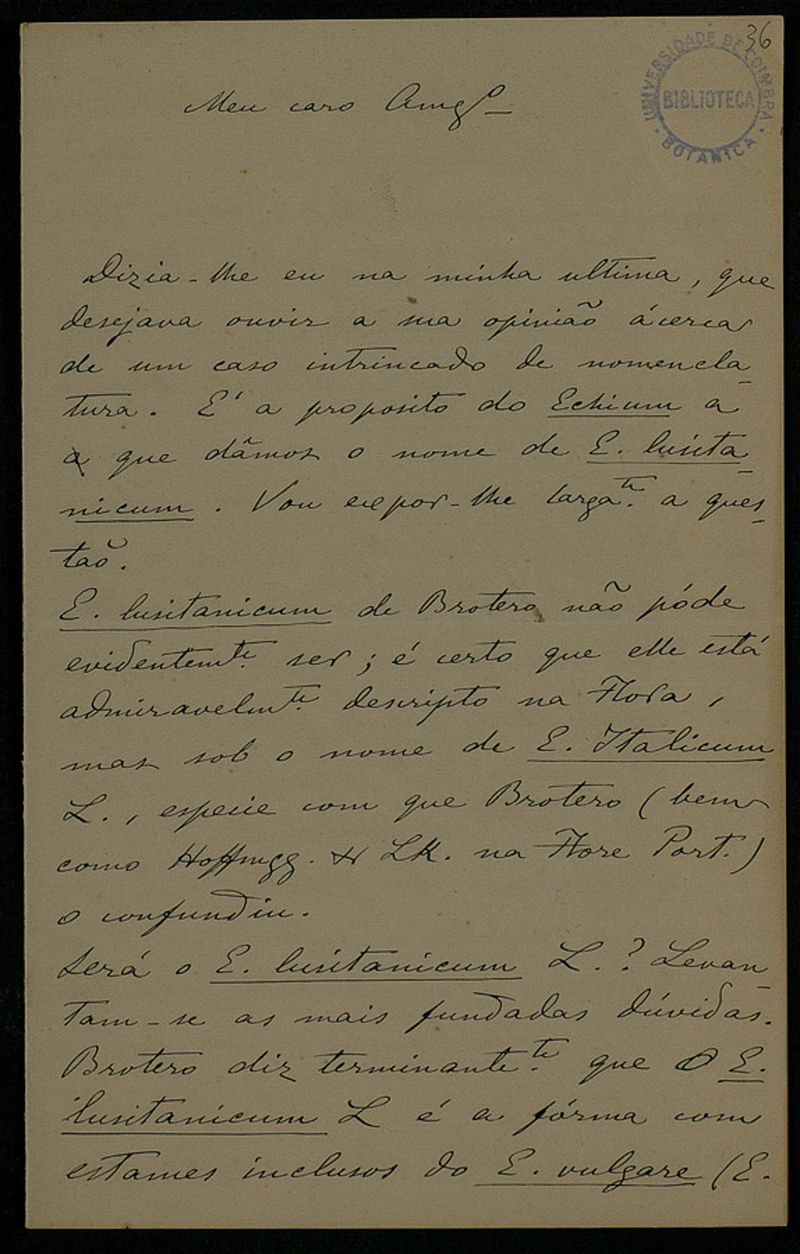 36
UNIVERSIDADE DE COIMBRA
BIBLIOTECA
BOTANICA
Meu caro Amgº
Dizia-lhe eu na minha ultima, que
desejava ouvir a sua opinião ácerca
de um caso intrincado de nomencla-
tura. É a proposito do Echium a
que dâmos o nome de E. lusita-
nicum. Vou expor-lhe largate. a ques-
tão.
E. lusitanicum de Brotero não póde
evidentemte. ser; é certo que elle está
admiravelmte. descripto na Flora,
mas sob o nome de E. Italicum
L., especie com que Brotero (bem
como Hoffmgg. & LK. na Flore Port.)
o confundiu.
Será o E. lusitanicum L.? Levan-
tam-se as mais fundadas dúvidas.
Brotero diz terminantete. que o E.
lusitanicum L é a fórma com
estames inclusos do E. vulgare (E.